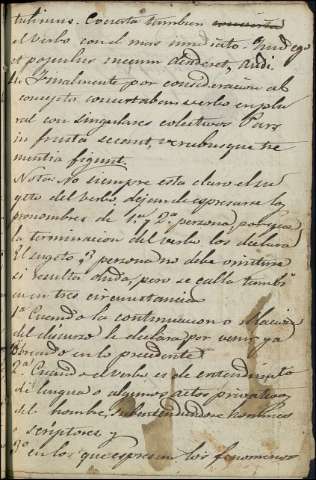 tulimus. Concerta tambien concierta
el verbo con el mas inmediato. Quid ego
et populus mecum desideret, audi.
4. Finalmente por consideracion al
concepto concertaban verbo en plu
ral con singulares colectivos Pars
in frusta secant, verubusque tre
mentia figunt.
Nota: No siempre esta claro el su
geto del verbo, dejan de espresarse los
pronombres de 1ª y 2ª persona porque
la terminacion del verbo los declara
El sugeto 3ª persona no debe omitirse
si resulta duda, pero se calla tambⁿ
en tres circunstancias
1ª Cuando la continuacion o
del discurso le declara por venir ya
obrando en lo precedente
2ª Cuando el verbo es de entendimᵗᵒ
di lengua o algunos actos privativos
del hombre, subentendiendose homines
o scriptores y
3ª en los que espresan los fenomenos